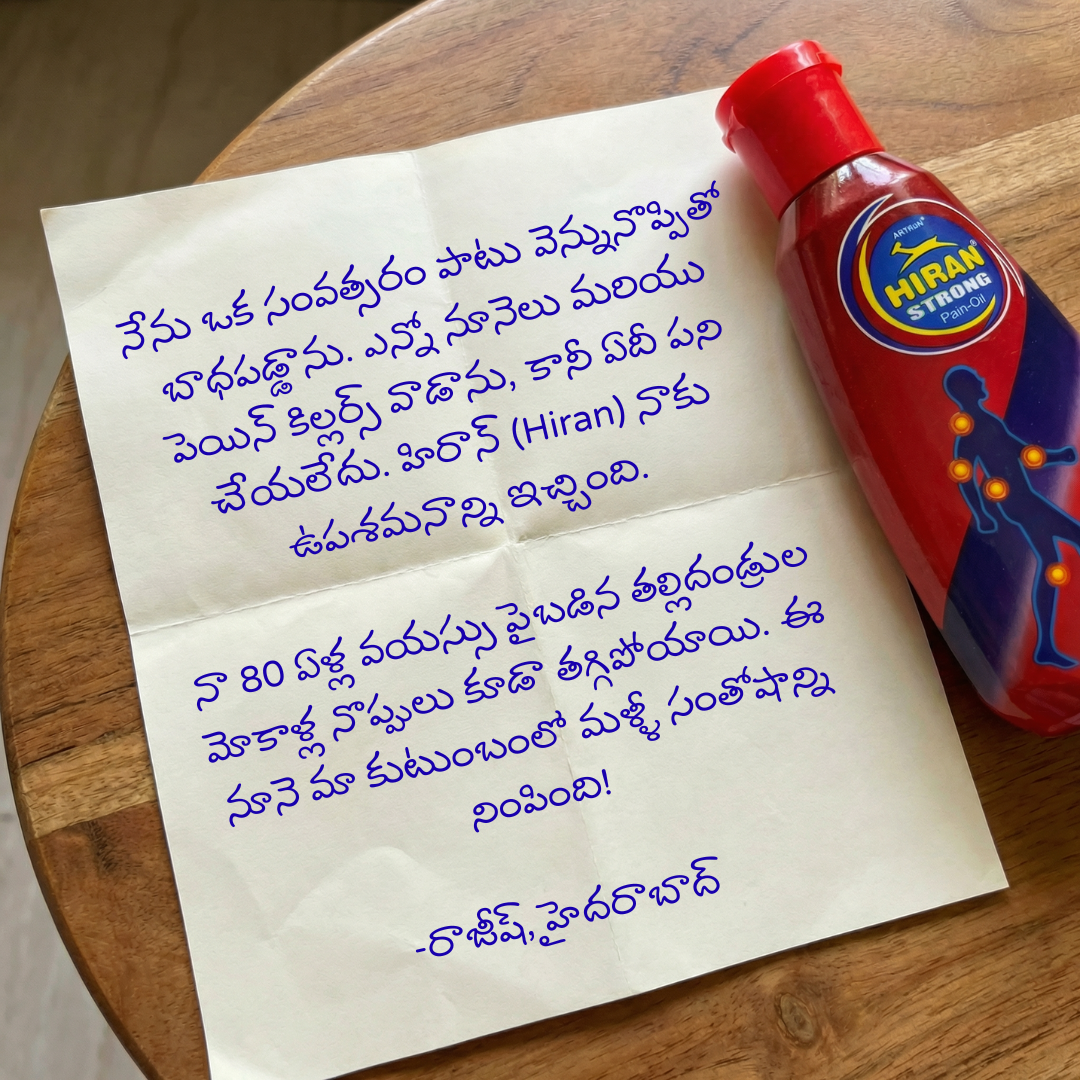 నేను ఒక సంవత్సరం పాటు వెన్నునొప్పితో
బాధపడ్డాను. ఎన్నో నూనెలు మరియు
పెయిన్ కిల్లర్స్ వాడాను, కానీ ఏదీ పని
చేయలేదు. హిరాన్ (Hiran) నాకు
ఉపశమనాన్ని ఇచ్చింది.
నా 80 ఏళ్ల వయస్సు పైబడిన తల్లిదండ్రుల
మోకాళ్ల నొప్పులు కూడా తగ్గిపోయాయి. ఈ
నూనె మా కుటుంబంలో మళ్ళీ సంతోషాన్ని
నింపింది!
-రాజీష్, హైదరాబాద్
ARTRON
HIRAN
STRONG
Pain-Oil